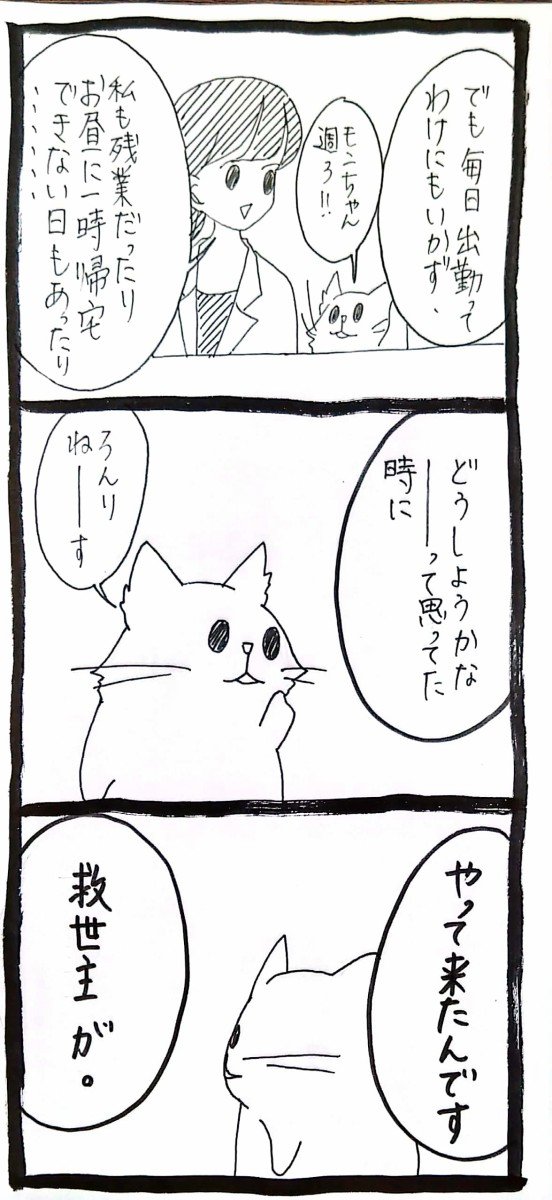 でも毎日出勤って
わけにもいかず、
モコちゃん
週3!!
私も残業だったり
お昼に一時帰宅
できない日もあったり
......
どうしようかな
──って思ってた
時に
ろんり
ね──す
やって来たんです
救世主が。